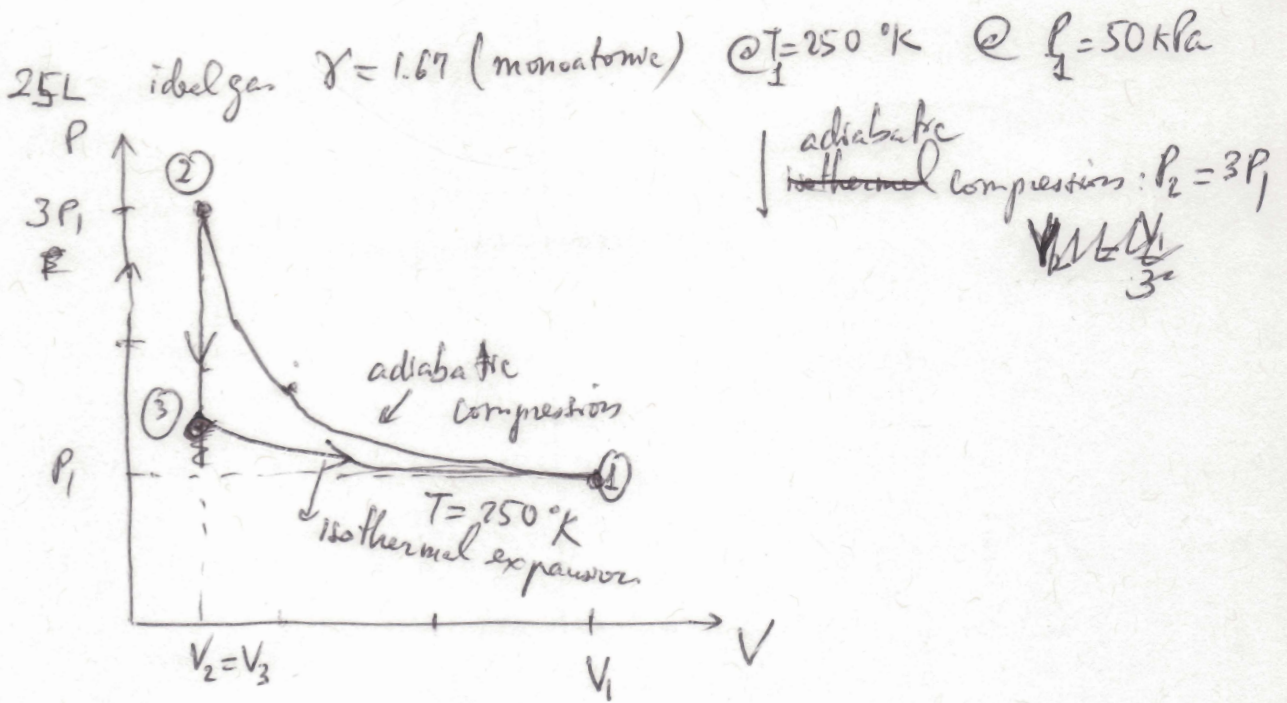 25L ideal gas γ = 1.67 (monoatomic) @ T₁ = 250 °K @ P₁ = 50 kPa
adiabatic
isothermal compression: P₂ = 3P₁
P
②
3P₁
adiabatic
compression
③
P₁
①
T = 250 °K
isothermal expansion
V₂ = V₃
V₁
V